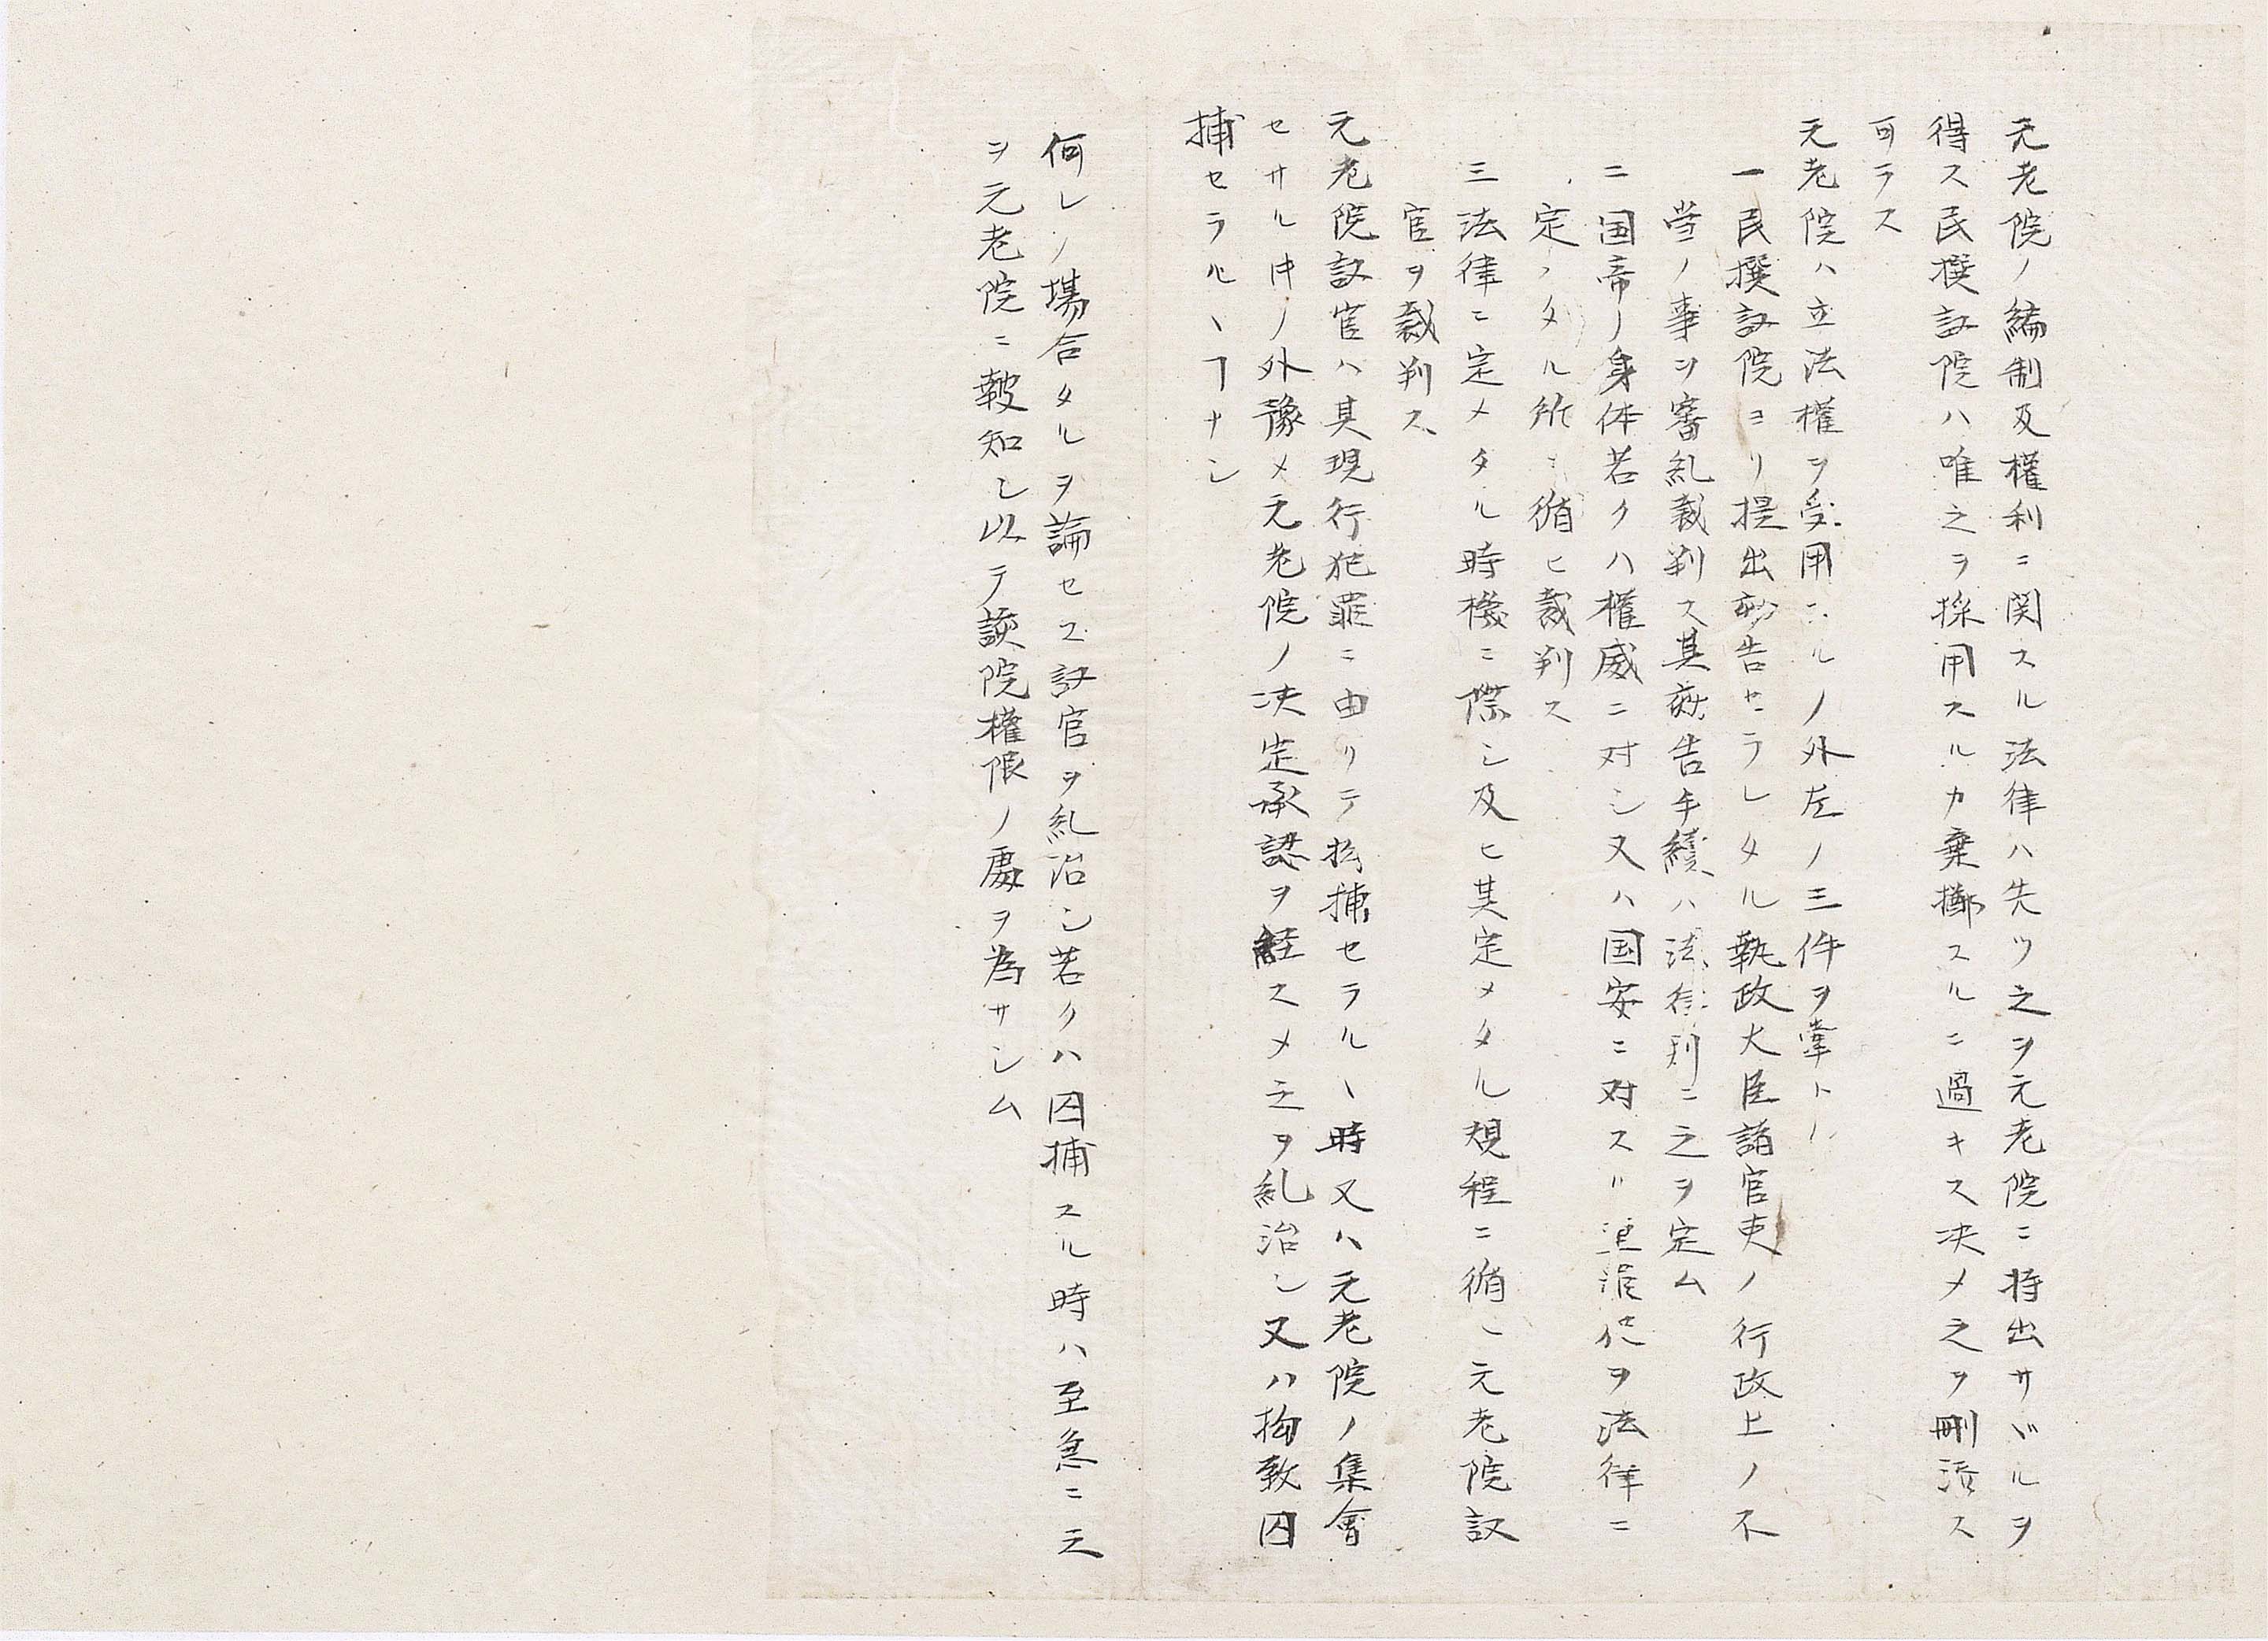 元老院ノ編制及權利ニ関スル法律ハ先ツ之ヲ元老院ニ持出サバルヲ
得ス民撰議院ハ唯之ヲ採用スルカ棄擲スルニ過キス決メ之ヲ刪添ス
可ラス
元老院ハ立法權ヲ受用スルノ外左ノ三件ヲ掌トル
一民撰議院ヨリ提出劾告セラレタル執政大臣諸官吏ノ行政上ノ不
當ノ事ヲ審糺裁判ス其劾告手續ハ法律別ニ之ヲ定ム
二国帝ノ身体若クハ權威ニ対シ又ハ国安ニ対スル重罪犯ヲ法律ニ
定メタル所ニ循ヒ裁判ス
三法律ニ定メタル時機ニ際シ及ヒ其定メタル規程ニ循ヒ元老院議
官ヲ裁判ス
元老院議官ハ其現行犯罪ニ由リテ拘捕セラルヽ時又ハ元老院ノ集會
セサル片ノ外豫メ元老院ノ决定承認ヲ経スメ之ヲ糺治シ又ハ拘致囚
捕セラルヽヿナシ
何レノ塲合タルヲ論セス議官ヲ糺治シ若クハ囚捕スル時ハ至急ニ之
ヲ元老院ニ報知シ以テ該院權限ノ處ヲ為サシム